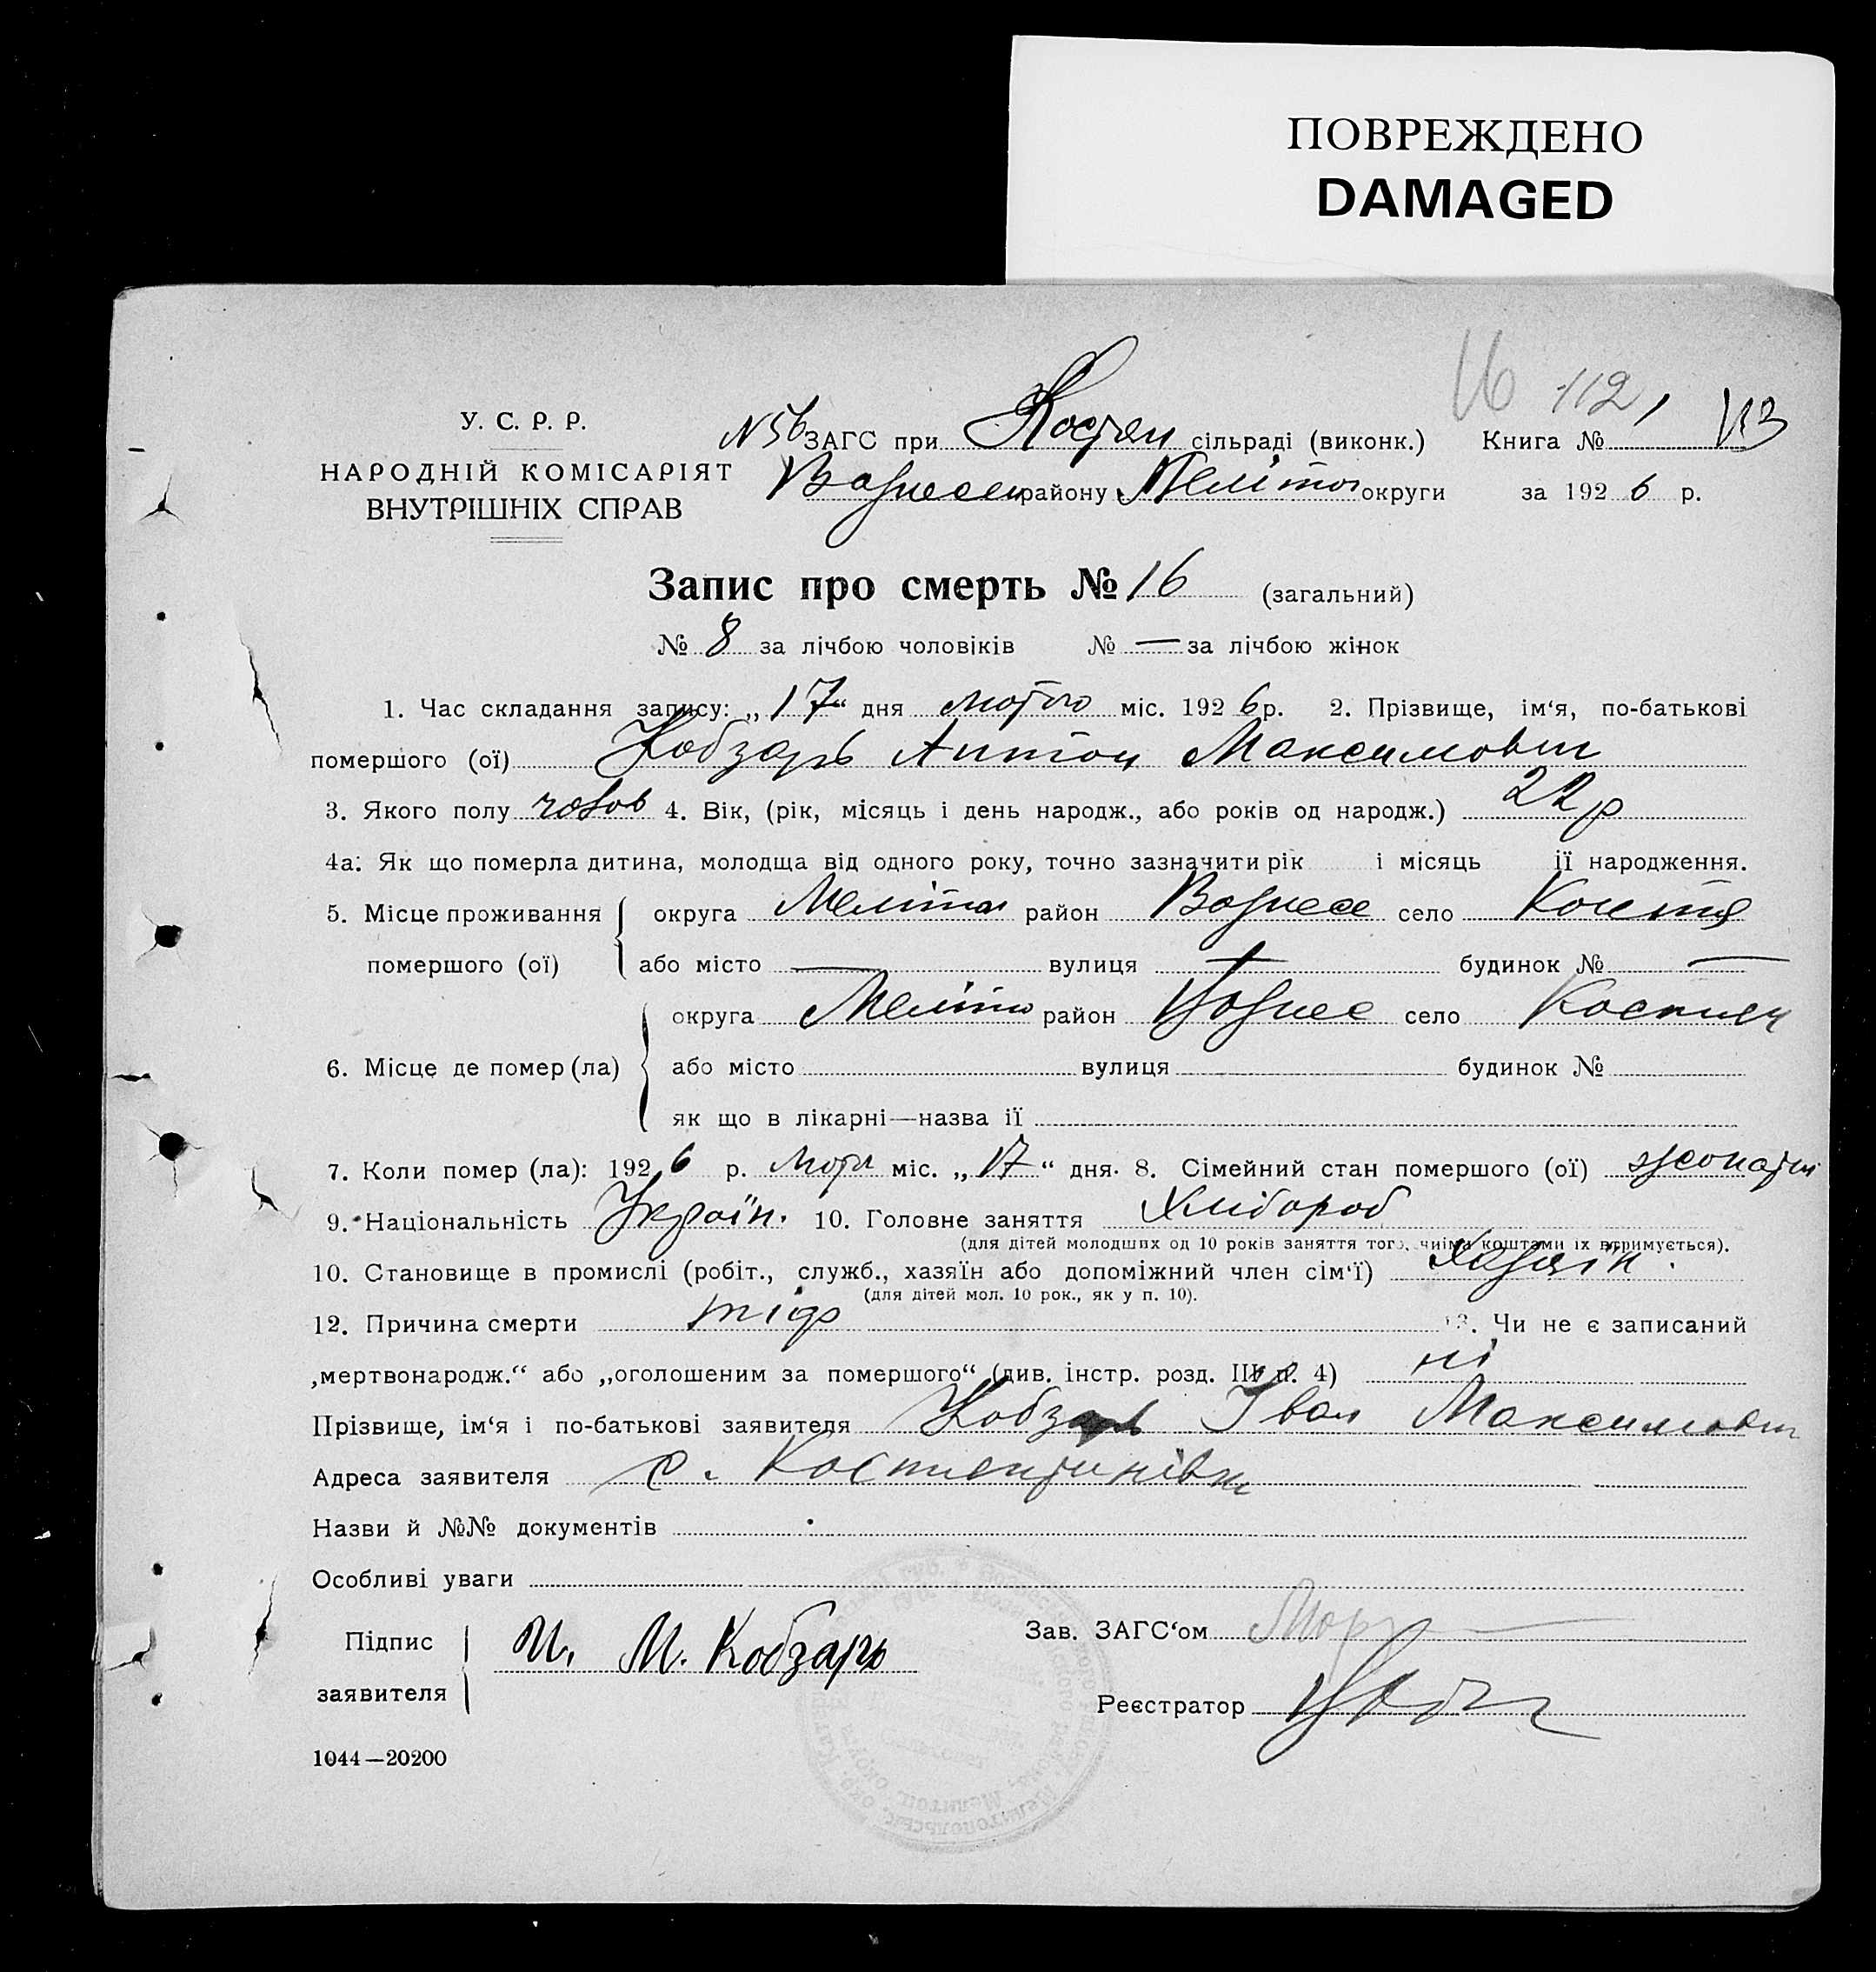 ПОВРЕЖДЕНО
DAMAGED
16 112, 113
У. С. Р. Р.
НАРОДНІЙ КОМІСАРІЯТ
ВНУТРІШНІХ СПРАВ
N 56 ЗАГС при Костян сільраді (виконк.) Книга №
Вознесен району Меліто округи за 1926 р.
Запис про смерть № 16 (загальний)
№ 8 за лічбою чоловіків № — за лічбою жінок
1. Час складання запису: „17“ дня лютого міс. 1926 р. 2. Прізвище, ім‘я, по-батькові
помершого (ої) Кобзарь Антон Максимович
3. Якого полу чолов 4. Вік, (рік, місяць і день народж., або років од народж.) 22 р
4а. Як що померла дитина, молодща від одного року, точно зазначити рік і місяць ії народження.
5. Місце проживання округа Меліто район Вознесе село
помершого (ої) або місто — вулиця — будинок № —
6. Місце де помер (ла) округа Меліто район Вознес село Костян
або місто вулиця будинок №
як що в лікарні—назва ії
7. Коли помер (ла): 1926 р. міс. „17“ дня. 8. Сімейний стан помершого (ої) жонатий
9. Національність Україн. 10. Головне заняття Хлібороб
(для дітей молодших од 10 років заняття того, чиїми коштами їх втримується).
10. Становище в промислі (робіт., служб., хазяїн або допоміжний член сім‘ї) Хазяїн.
(для дітей мол. 10 рок., як у п. 10).
12. Причина смерти тіф 13. Чи не є записаний
„мертвонародж.“ або „оголошеним за помершого“ (див. інстр. розд. III п. 4) ні
Прізвище, ім‘я і по-батькові заявителя Кобзарь Іван Максимович
Адреса заявителя с. Костянтинівка
Назви й №№ документів
Особливі уваги
Підпис заявителя И. М. Кобзарь
Зав. ЗАГС‘ом
Реєстратор
1044—20200